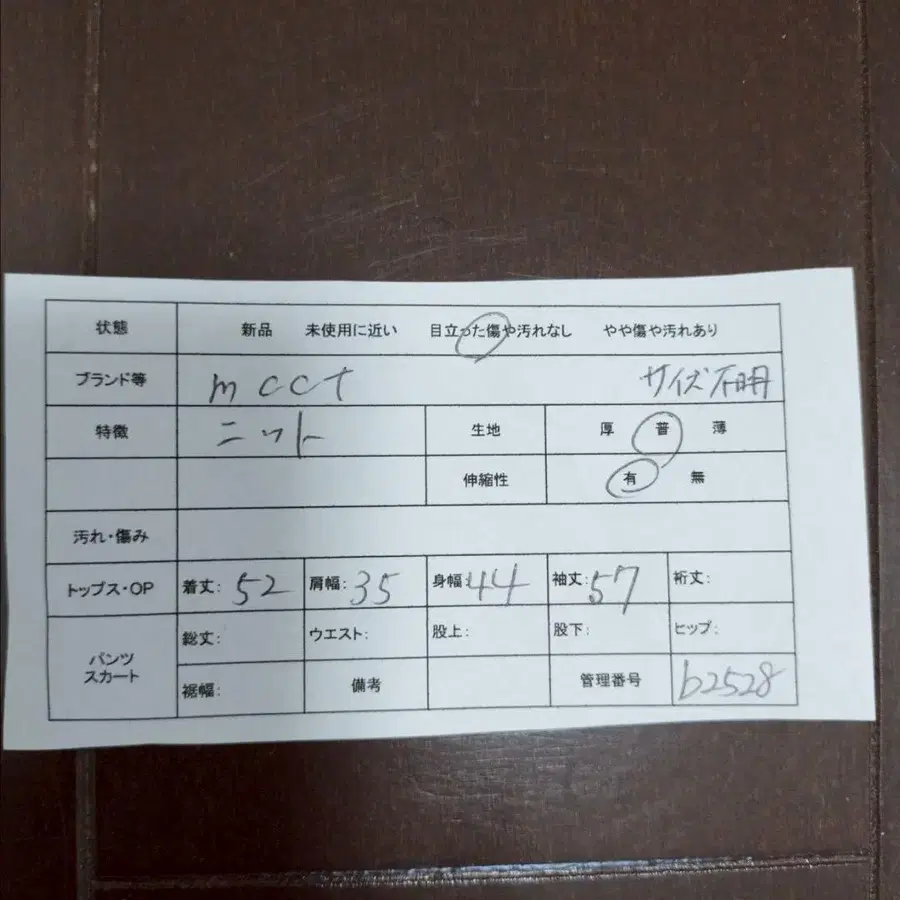 状態 新品 未使用に近い 目立った傷や汚れなし やや傷や汚れあり
ブランド等 mcct サイズ不明
特徴 ニット 生地 厚 普 薄
伸縮性 有 無
汚れ・傷み
トップス・OP 着丈: 52 肩幅: 35 身幅: 44 袖丈: 57 裄丈:
パンツ スカート 総丈: ウエスト: 股上: 股下: ヒップ:
裾幅: 備考 管理番号 b2528